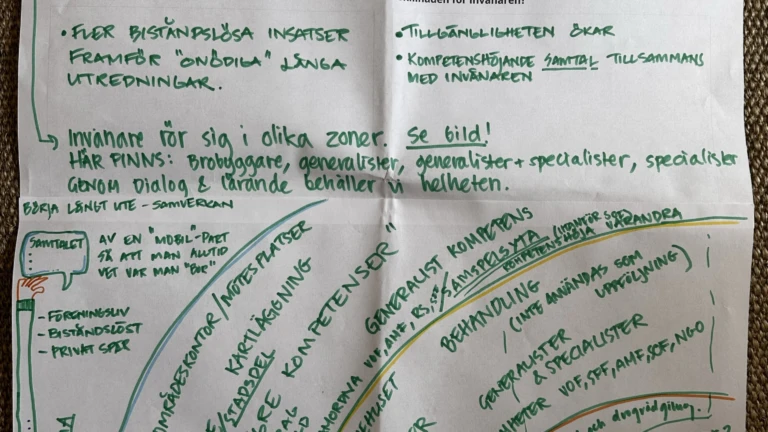 invånaren?
• FLER BISTÅNDSLÖSA INSATSER
FRAMFÖR "ONÖDIGA" LÅNGA
UTREDNINGAR.
• TILLGÄNGLIGHETEN ÖKAR
• KOMPETENSHÖJANDE SAMTAL TILLSAMMANS
MED INVÅNAREN
Invånare rör sig i olika zoner. Se bild!
HÄR FINNS: Brobyggare, generalister, generalister + specialister, specialister
GENOM Dialog & lärande behåller vi helheten.
BÖRJA LÅNGT UTE - SAMVERKAN
SAMTALET
AV EN "MOBIL"-PART
SÅ ATT MAN ALLTID
VET VAR MAN "BOR"
- FÖRENINGSLIV
- BISTÅNDSLÖST
- PRIVAT SPÅR
OMRÅDESKONTOR/MÖTESPLATSER
KARTLÄGGNING
/STADSDEL
KOMPETENSER"
GENERALIST KOMPETENS
VOF, AMF,
/SAMSPELSYTA
KOMPETENSHÖJA VARANDRA
BEHANDLING
(INTE ANVÄNDAS SOM
UPPFÖLJNING)
GENERALISTER
& SPECIALISTER
VOF, SFF, AMF, SOF, NGO
och